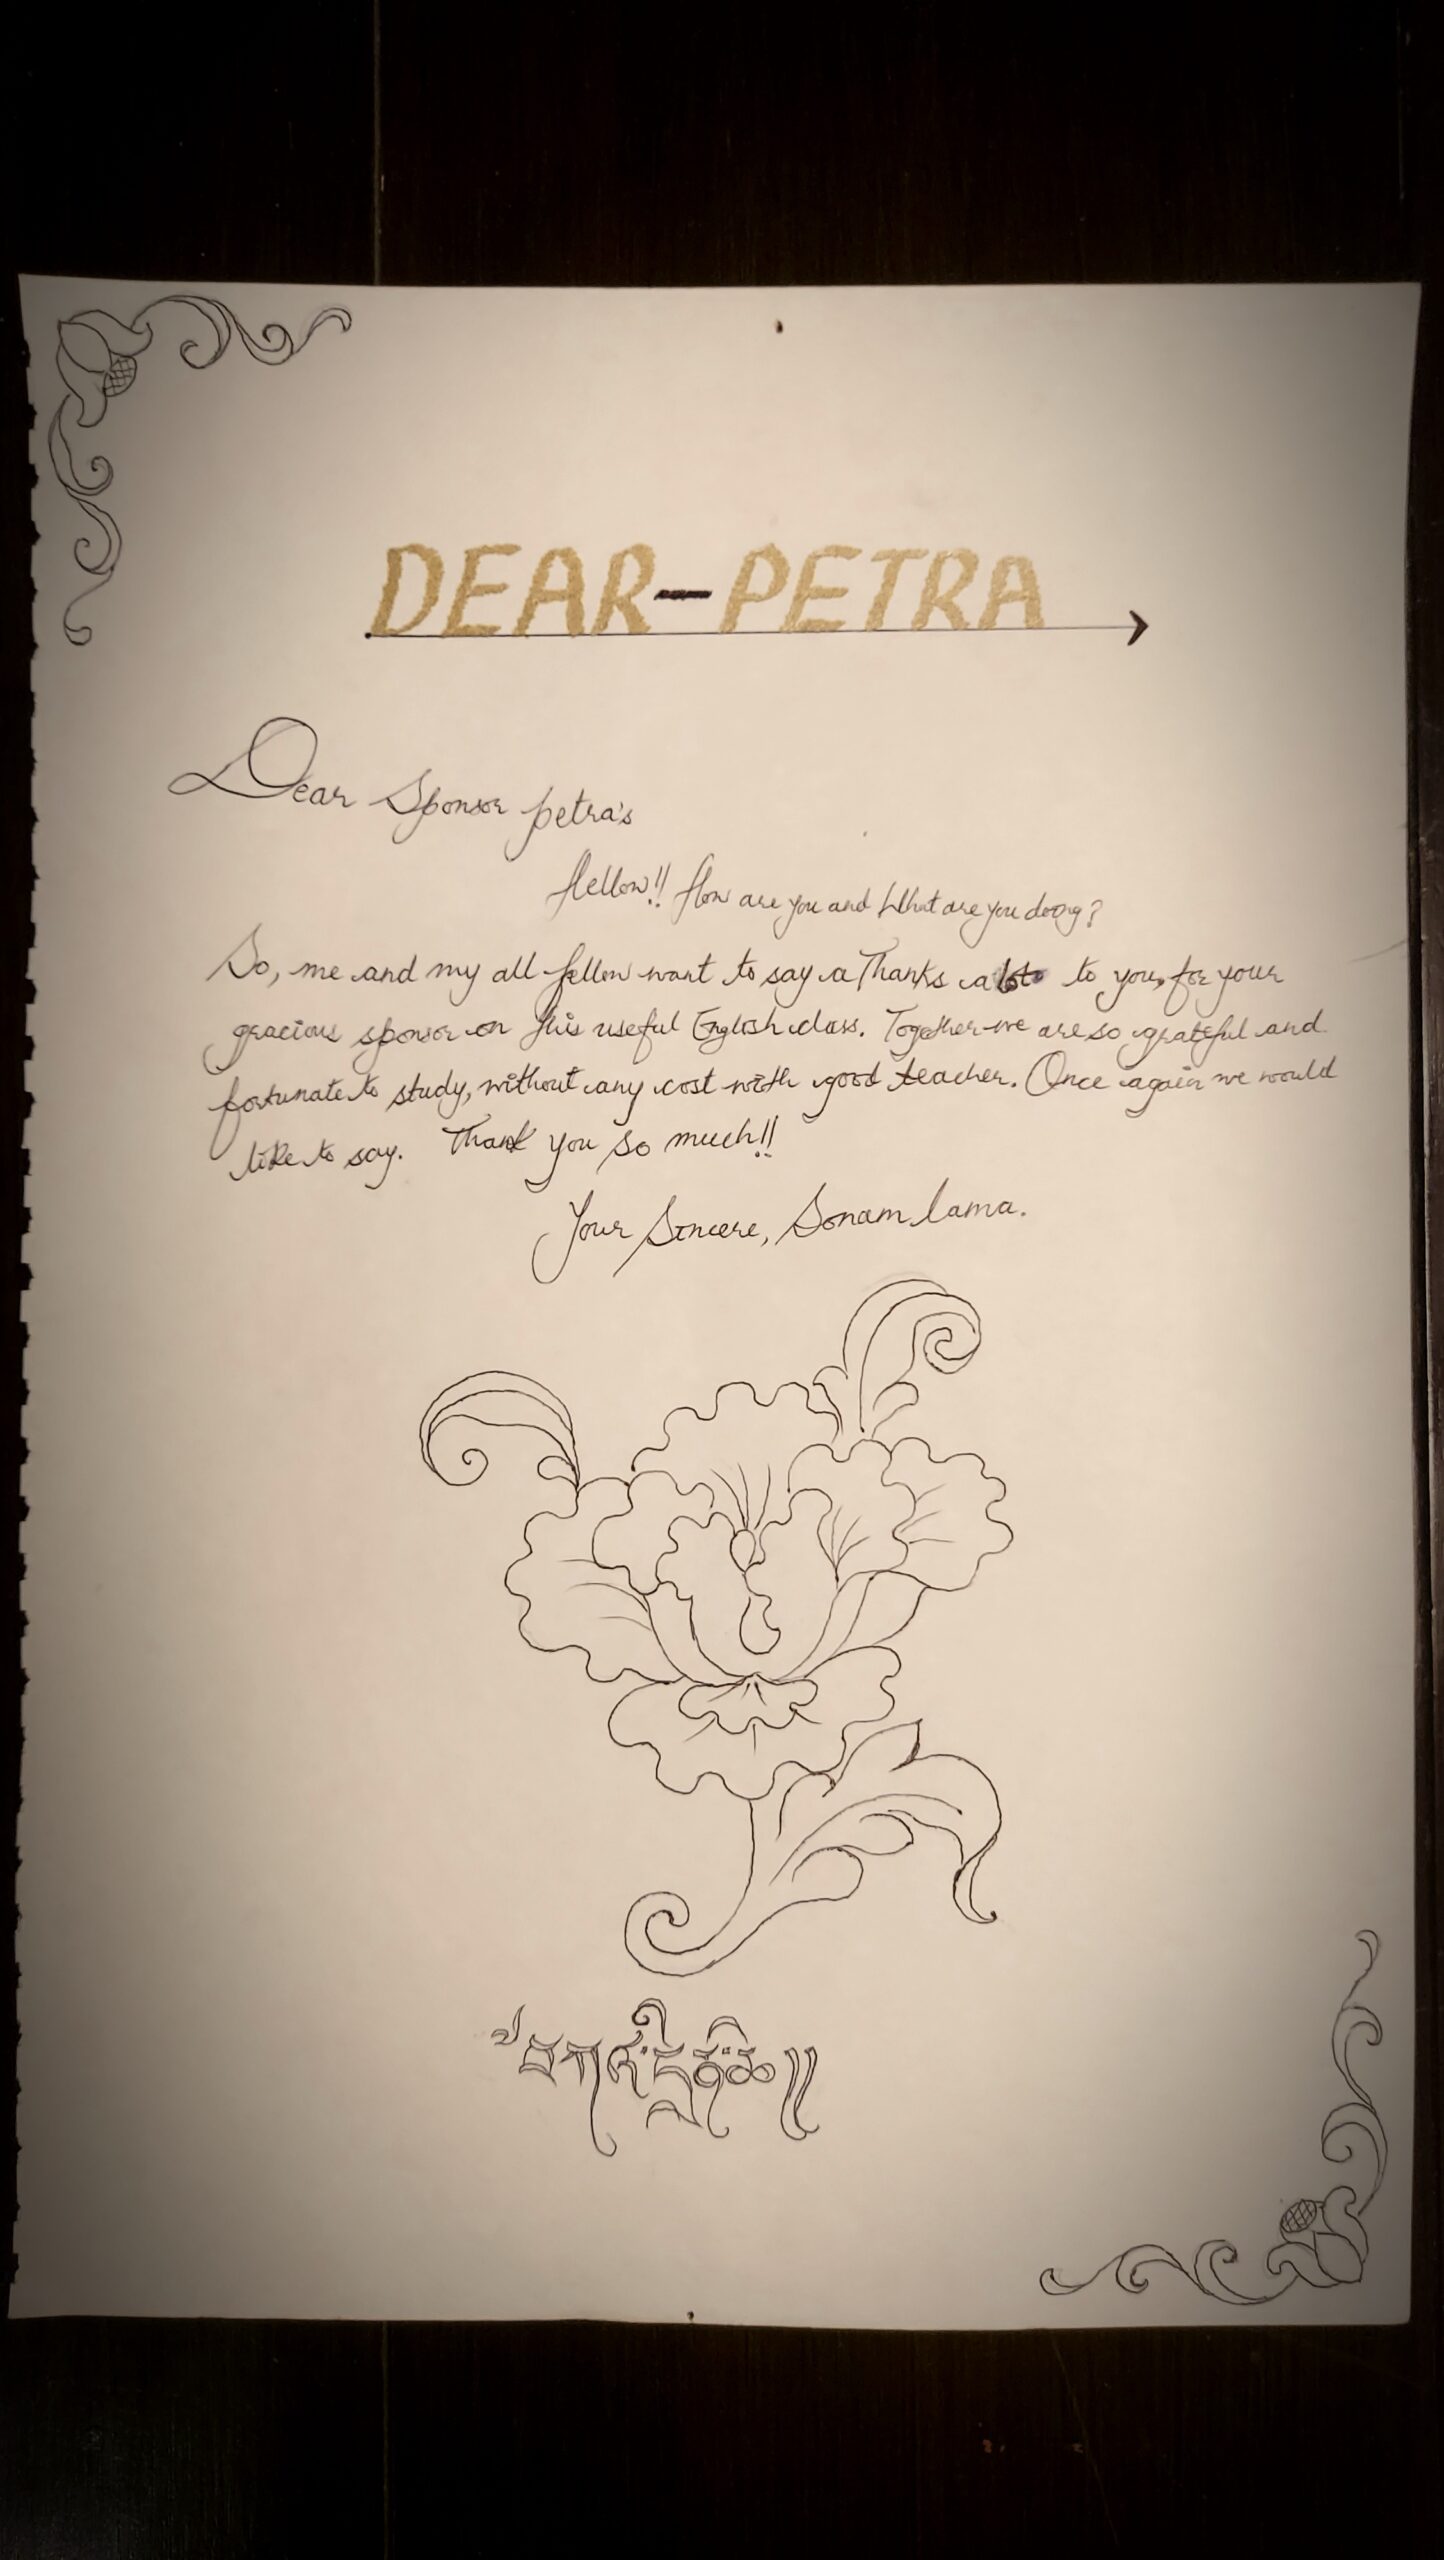 DEAR-PETRA
Dear Sponsor petra's
Hellow!! How are you and What are you doing?
So, me and my all fellow want to say a Thanks a lot to you, for your
gracious sponsor on this useful English class. Together we are so grateful and
fortunate to study, without any cost with good teacher. Once again we would
like to say. Thank you so much!!
Your Sincere, Sonam lama.
བཀའ་དྲིན་ཆེ༎